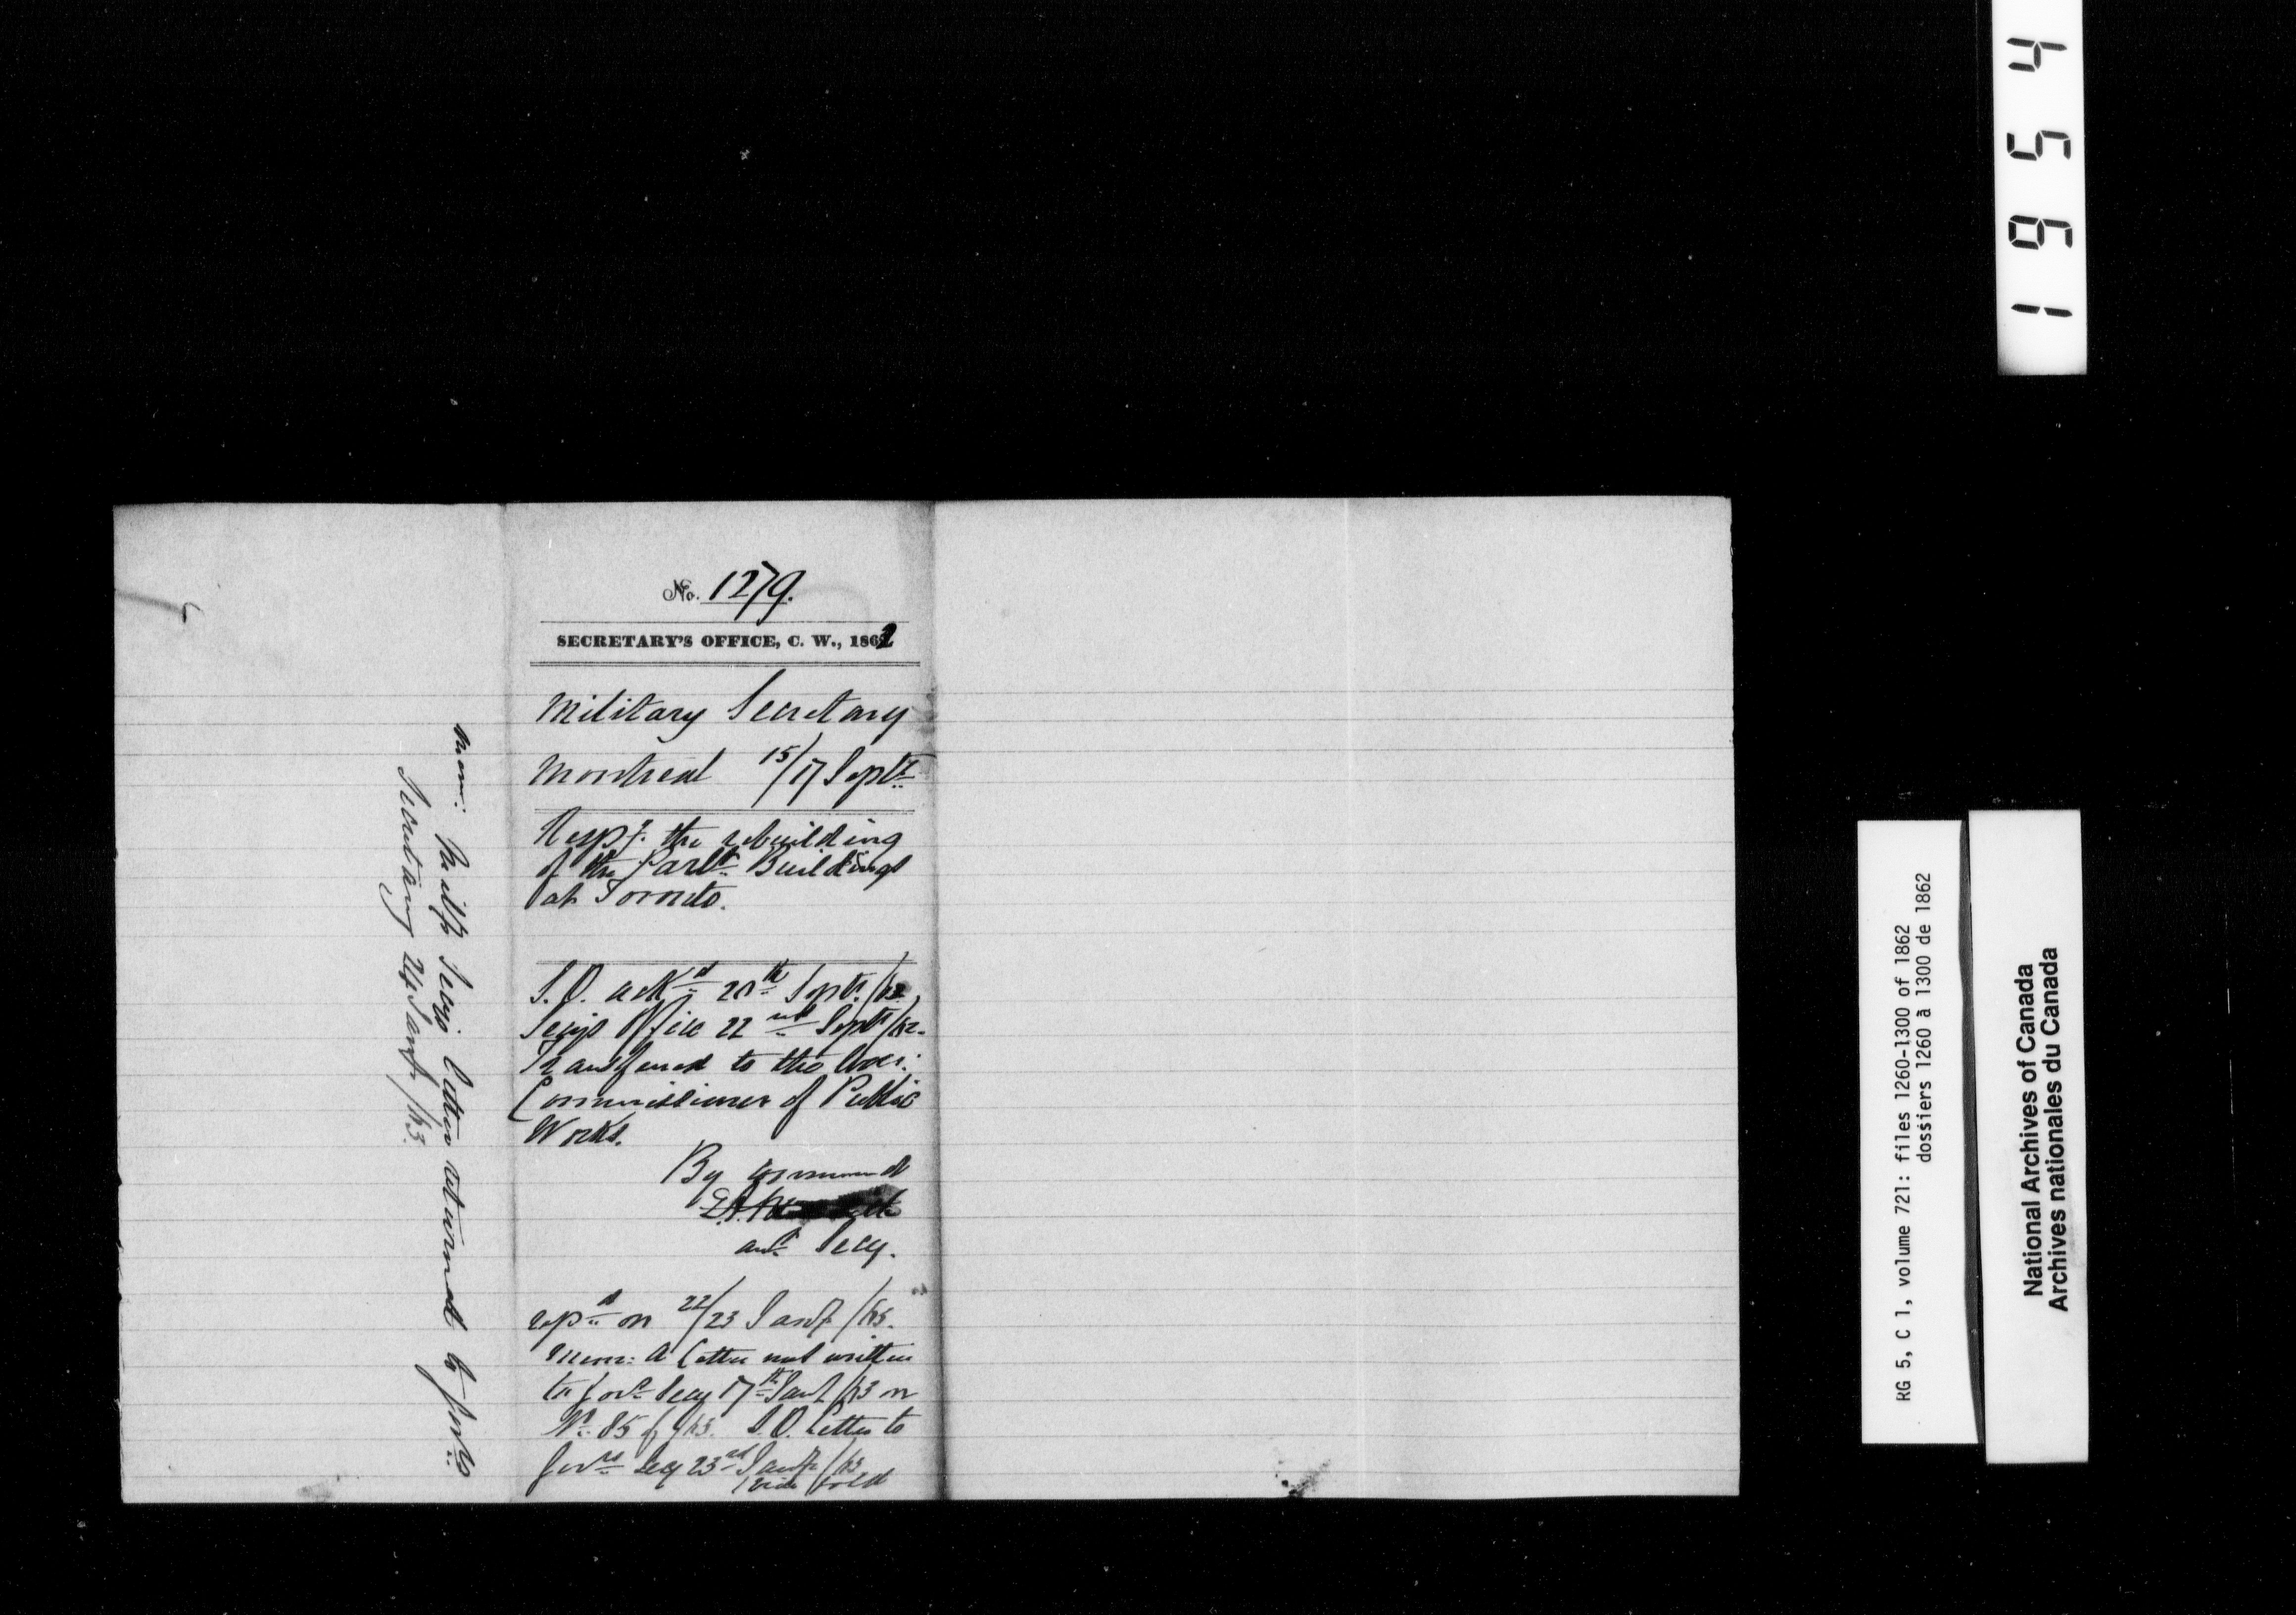 No. 1279.
SECRETARY'S OFFICE, C. W., 1862
Military Secretary
Montreal 15/17 Septr
Respg. the rebuilding
of the Parlt. Buildings
at Toronto.
S. O. ackd 20th Septr. /62
Secy's Office 22nd Septr /62.
Transferred to the
Commissioner of Public
Works.
By command
E. A.
Asst Secy.
repd on 22/23 Jany /63.
Mem: A letter not written
to Govr Secy 17th Jany /63 on
No. 85 of /63. S. O. letter to
Govrs Secy 23rd Jany /63
(vide fold
Mem: Mility Secy's letter returned to Govrs
Secretary 24 Jany /63.
1954
RG 5, C 1, volume 721: files 1260-1300 of 1862
dossiers 1260 à 1300 de 1862
National Archives of Canada
Archives nationales du Canada